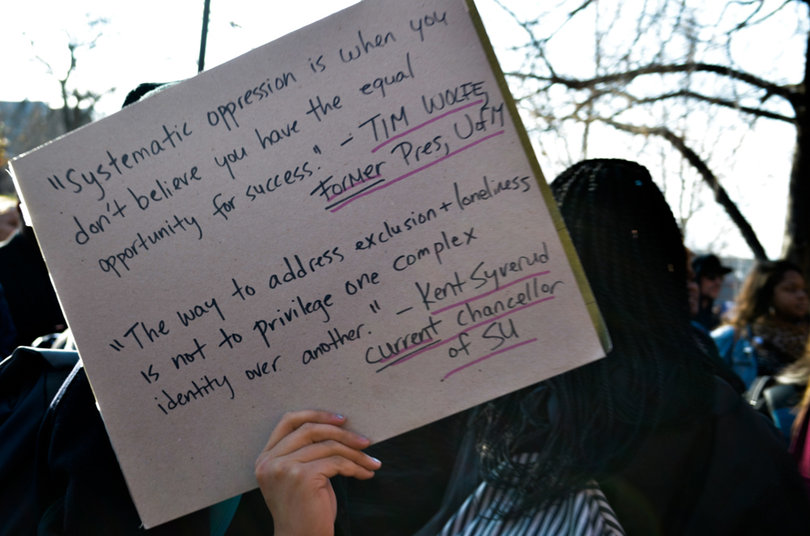 "Systematic oppression is when you
don't believe you have the equal
opportunity for success." - TIM WOLFE,
Former Pres, UofM
"The way to address exclusion + loneliness
is not to privilege one complex
identity over another." - Kent Syverud
current chancellor
of SU